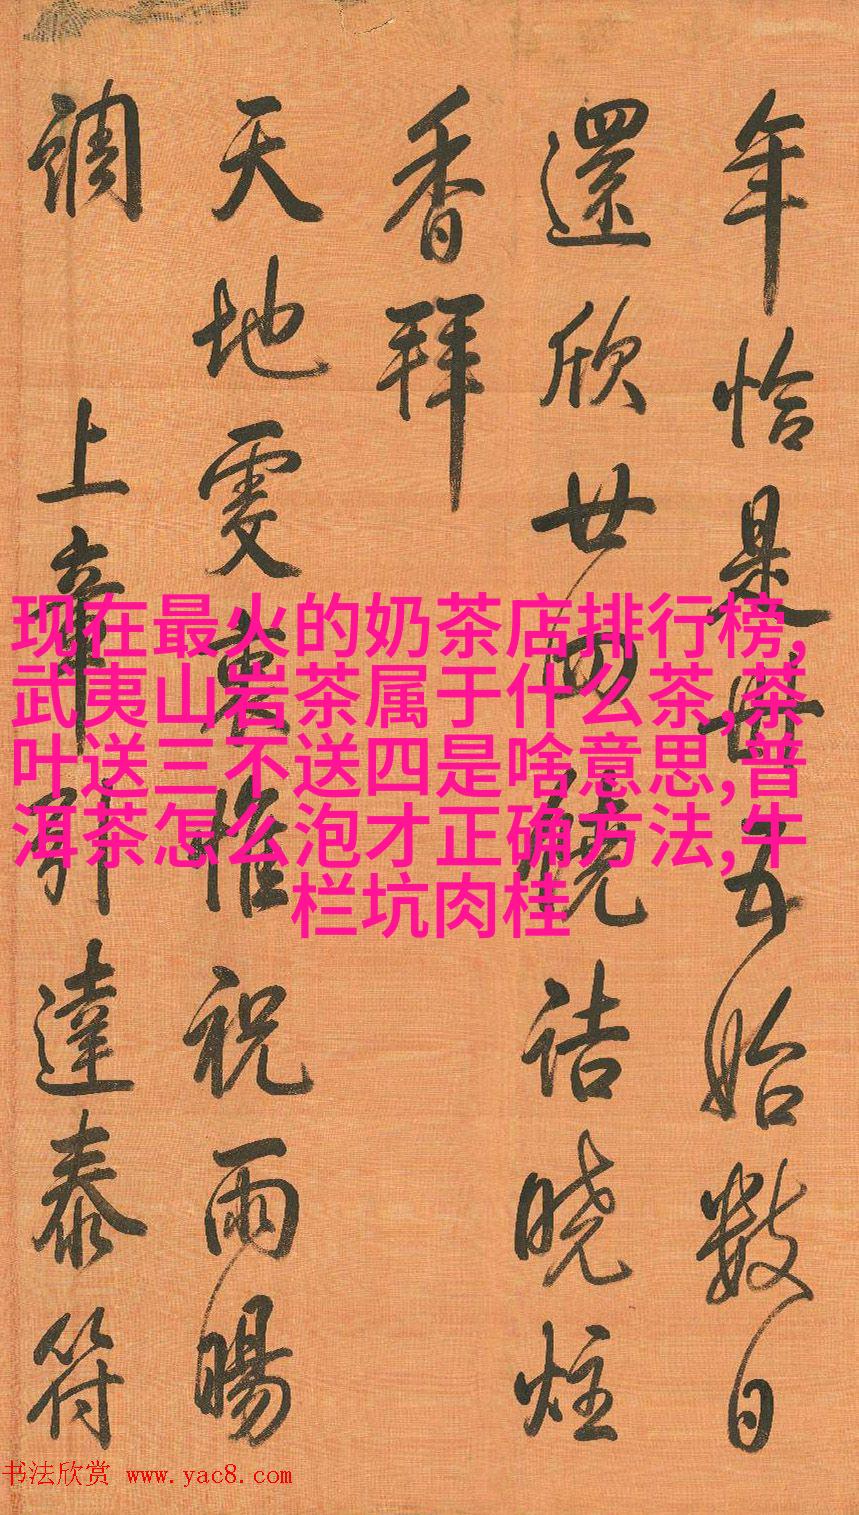 年恰是卅五始数日
還欣廿四繞詰曉炷
香拜
天地雯裏惟祝雨暘
調上章引達泰符
现在最火的奶茶店排行榜,
武夷山岩茶属于什么茶,茶
叶送三不送四是啥意思,普
洱茶怎么泡才正确方法,牛
栏坑肉桂
书法欣赏 www.yac8.com